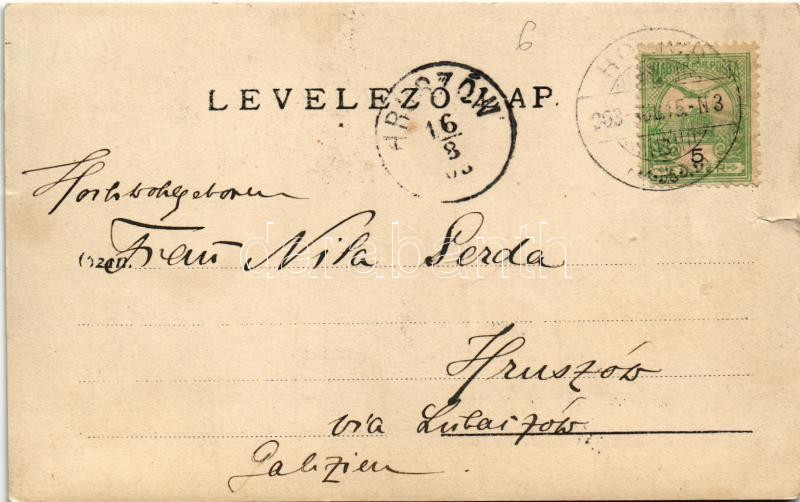 6
LEVELEZŐ-LAP.
HRUSZÓW
16
8
903 15-N3
MAGYAR KIR. POSTA
5
Hochwohlgeboren
Frau Nila Serda
Hruszów
via Lubaczów
Galizien
darabanth